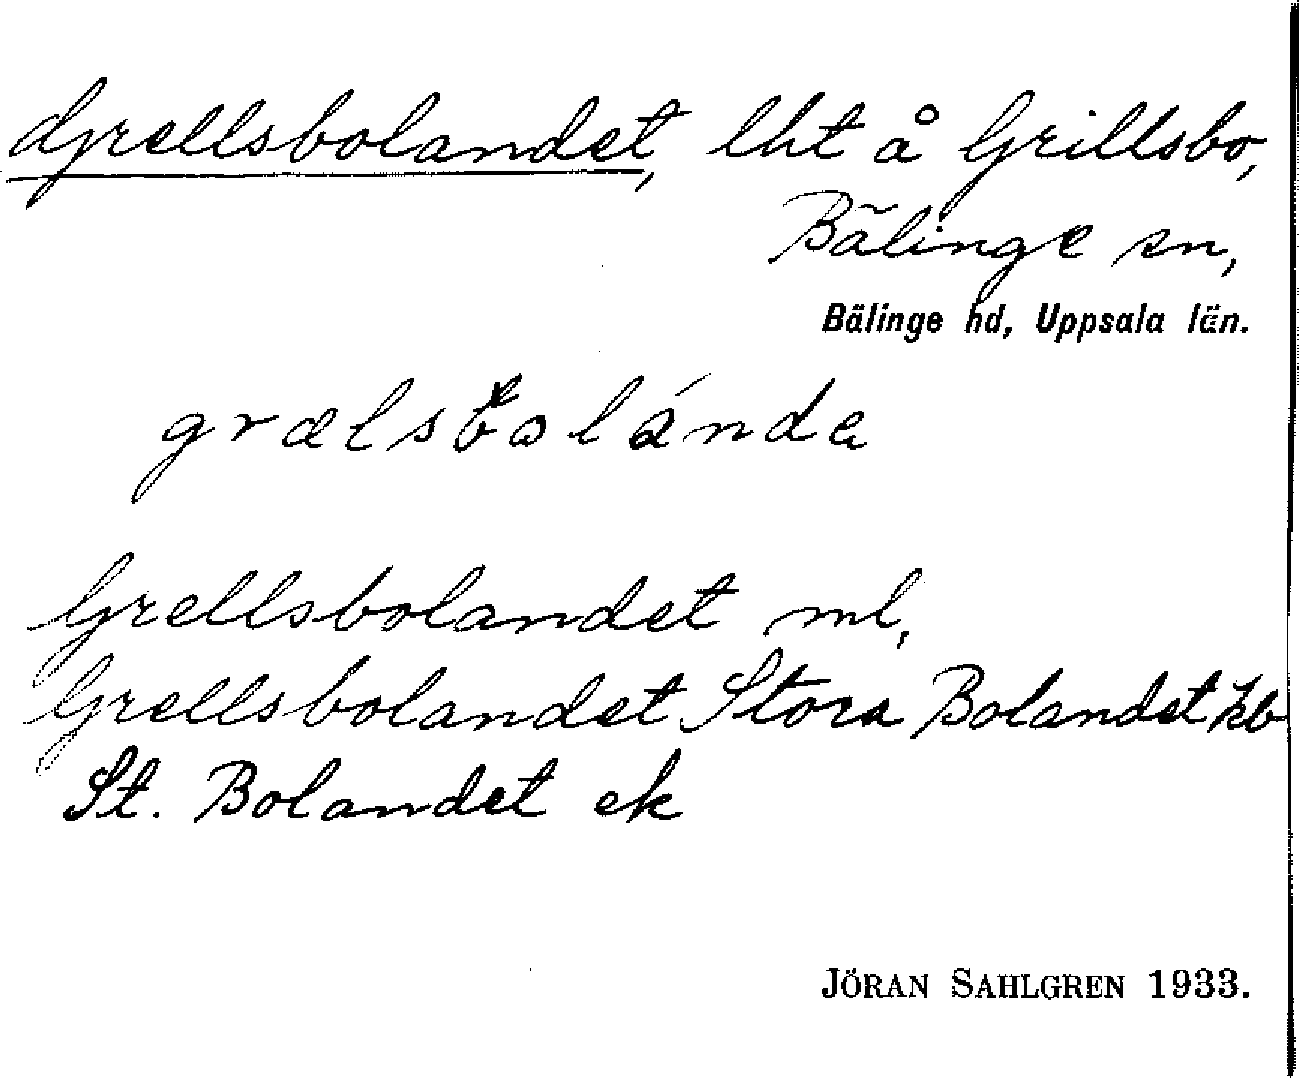 Grellsbolandet, lht å Grillsbo,
Bälinge sn,
Bälinge hd, Uppsala län.
grælsbolánda
Grellsbolandet ml,
Grellsbolandet Stora Bolandet kb
St. Bolandet ek
JÖRAN SAHLGREN 1933.